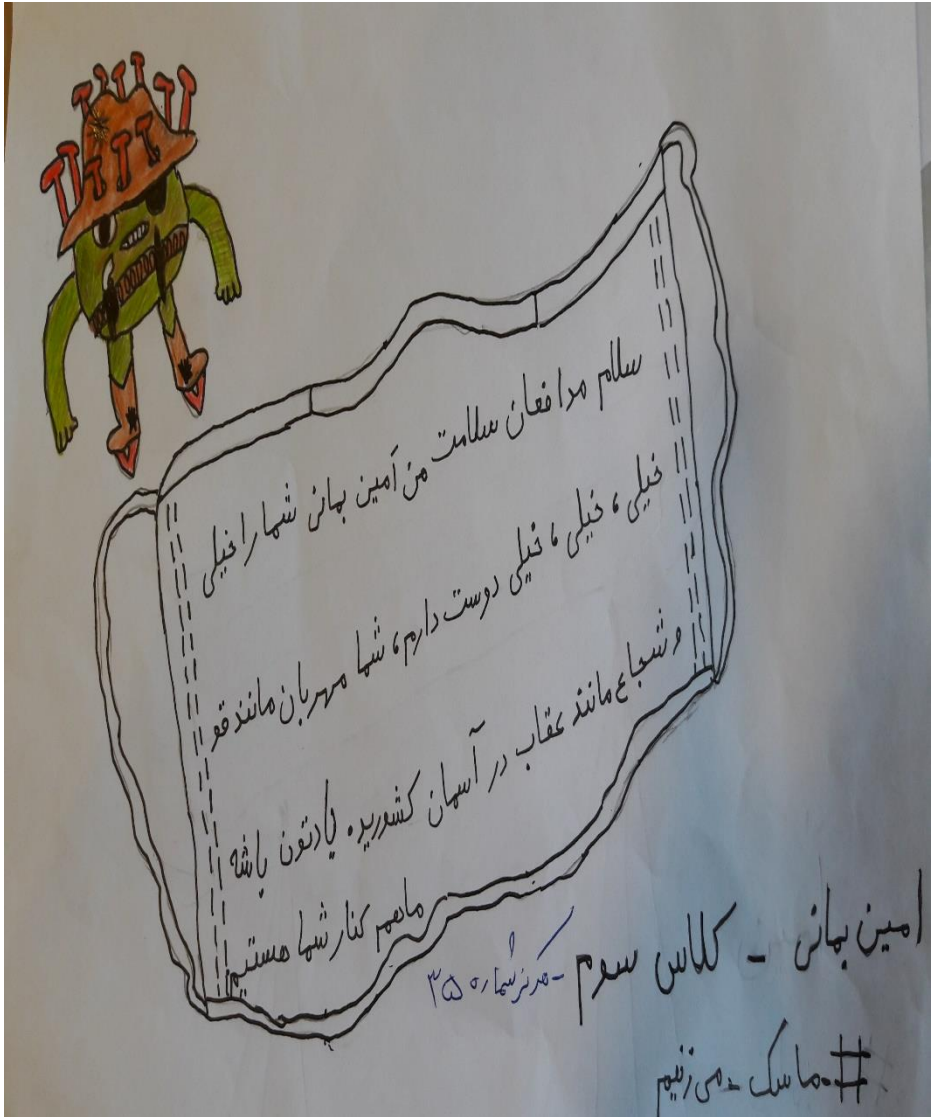 سلام مدافعان سلامت من آمین بمانی شما را خیلی
خیلی، خیلی، خیلی دوست دارم، شما مهربان مانند قو
و شجاع مانند عقاب در آسمان کشورید. یادتون باشه
ماهم کنار شما هستیم
امین بمانی - کلاس سوم - مرکز شماره ۳۵
#ماسک_می زنیم